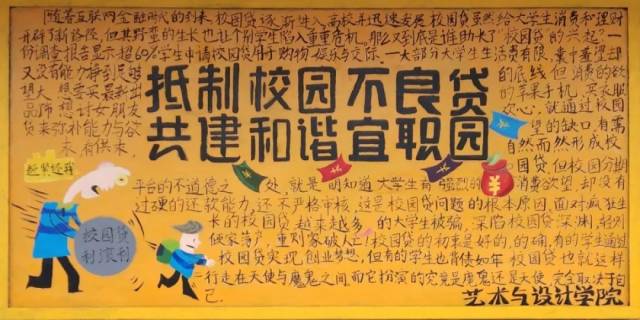 随着互联网金融时代的到来,校园贷逐渐进入高校并迅速发展。校园贷虽然给大学生消费和理财
开辟了新路径,但其野蛮的生长也让个别学生陷入重重危机。那么到底是谁助长了"校园贷"的兴起?一
份调查报告显示超60%学生申请校园贷用于购物、娱乐与交际。一大部分大学生生活费有限,
又没有能力挣到足够
的底线,但消费的欲
望大,想要买最新出
的苹果手机,买衣服
想讨女朋友
欢心,就通过校园
贷来弥补能力与欲
望的缺口,有需
求,有供求,
自然而然形成校
园贷,但校园分期
抵制校园不良贷
共建和谐宜职园
平台的不道德之处,就是明知道大学生有强烈的消费欲望却没有
过硬的还款能力,还不严格审核,这是校园贷问题的根本原因,面对疯狂生
长的校园贷越来越多的大学生被骗,深陷校园贷深渊,轻则
倾家荡产,重则家破人亡!校园贷的初衷是好的,的确,有的学生通过
校园贷实现创业梦想,但有的学生也背债如年,校园贷也就这样
行走在天使与魔鬼之间,而它扮演的究竟是魔鬼还是天使,完全取决于自
己.
校园贷
利滚利
¥
¥
¥
¥
艺术与设计学院